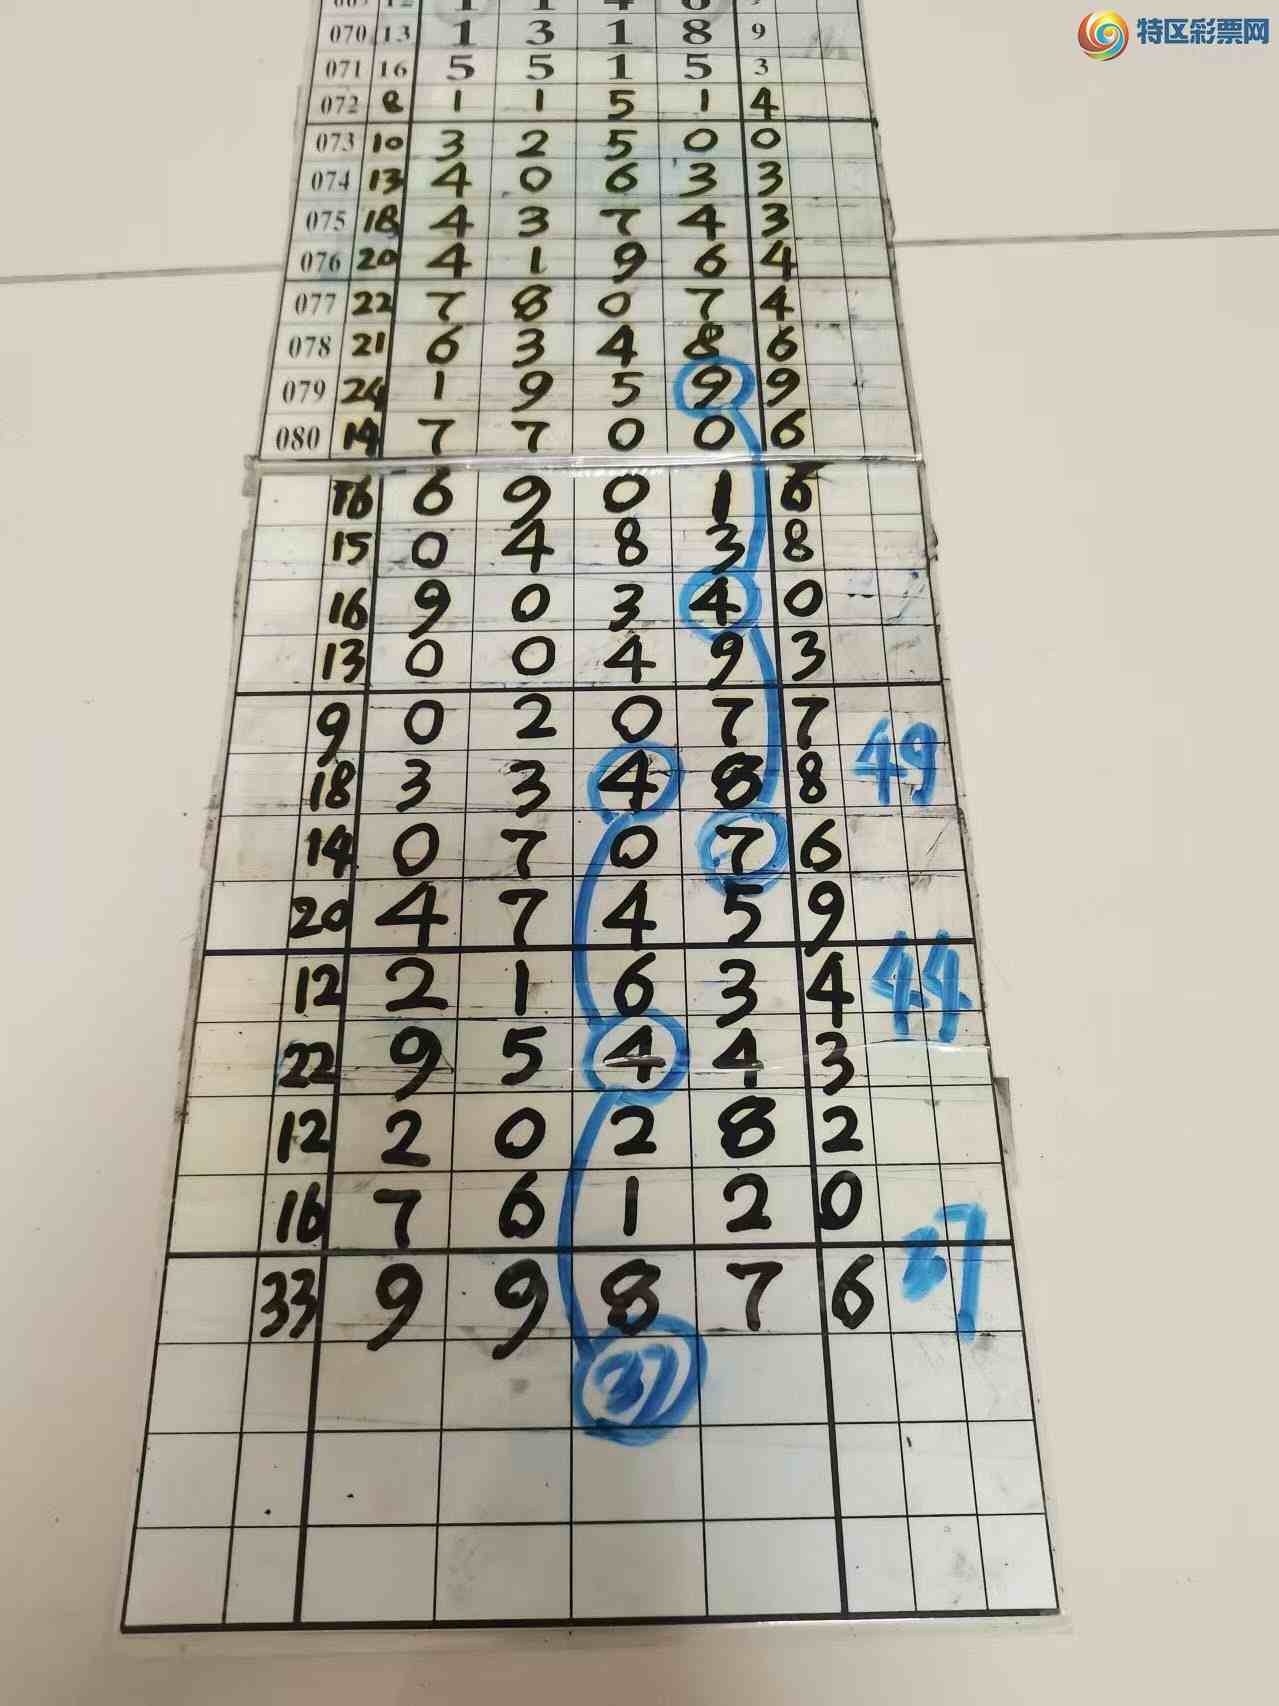 特区彩票网
070 13 1 3 1 8 9
071 16 5 5 1 5 3
072 8 1 1 5 1 4
073 10 3 2 5 0 0
074 13 4 0 6 3 3
075 18 4 3 7 4 3
076 20 4 1 9 6 4
077 22 7 8 0 7 4
078 21 6 3 4 8 6
079 24 1 9 5 9 9
080 14 7 7 0 0 6
16 6 9 0 1 6
15 0 4 8 3 8
16 9 0 3 4 0
13 0 0 4 9 3
9 0 2 0 7 7
18 3 3 4 8 8 49
14 0 7 0 7 6
20 4 7 4 5 9
12 2 1 6 3 4 44
22 9 5 4 4 3
12 2 0 2 8 2
16 7 6 1 2 0
37
33 9 9 8 7 6
37